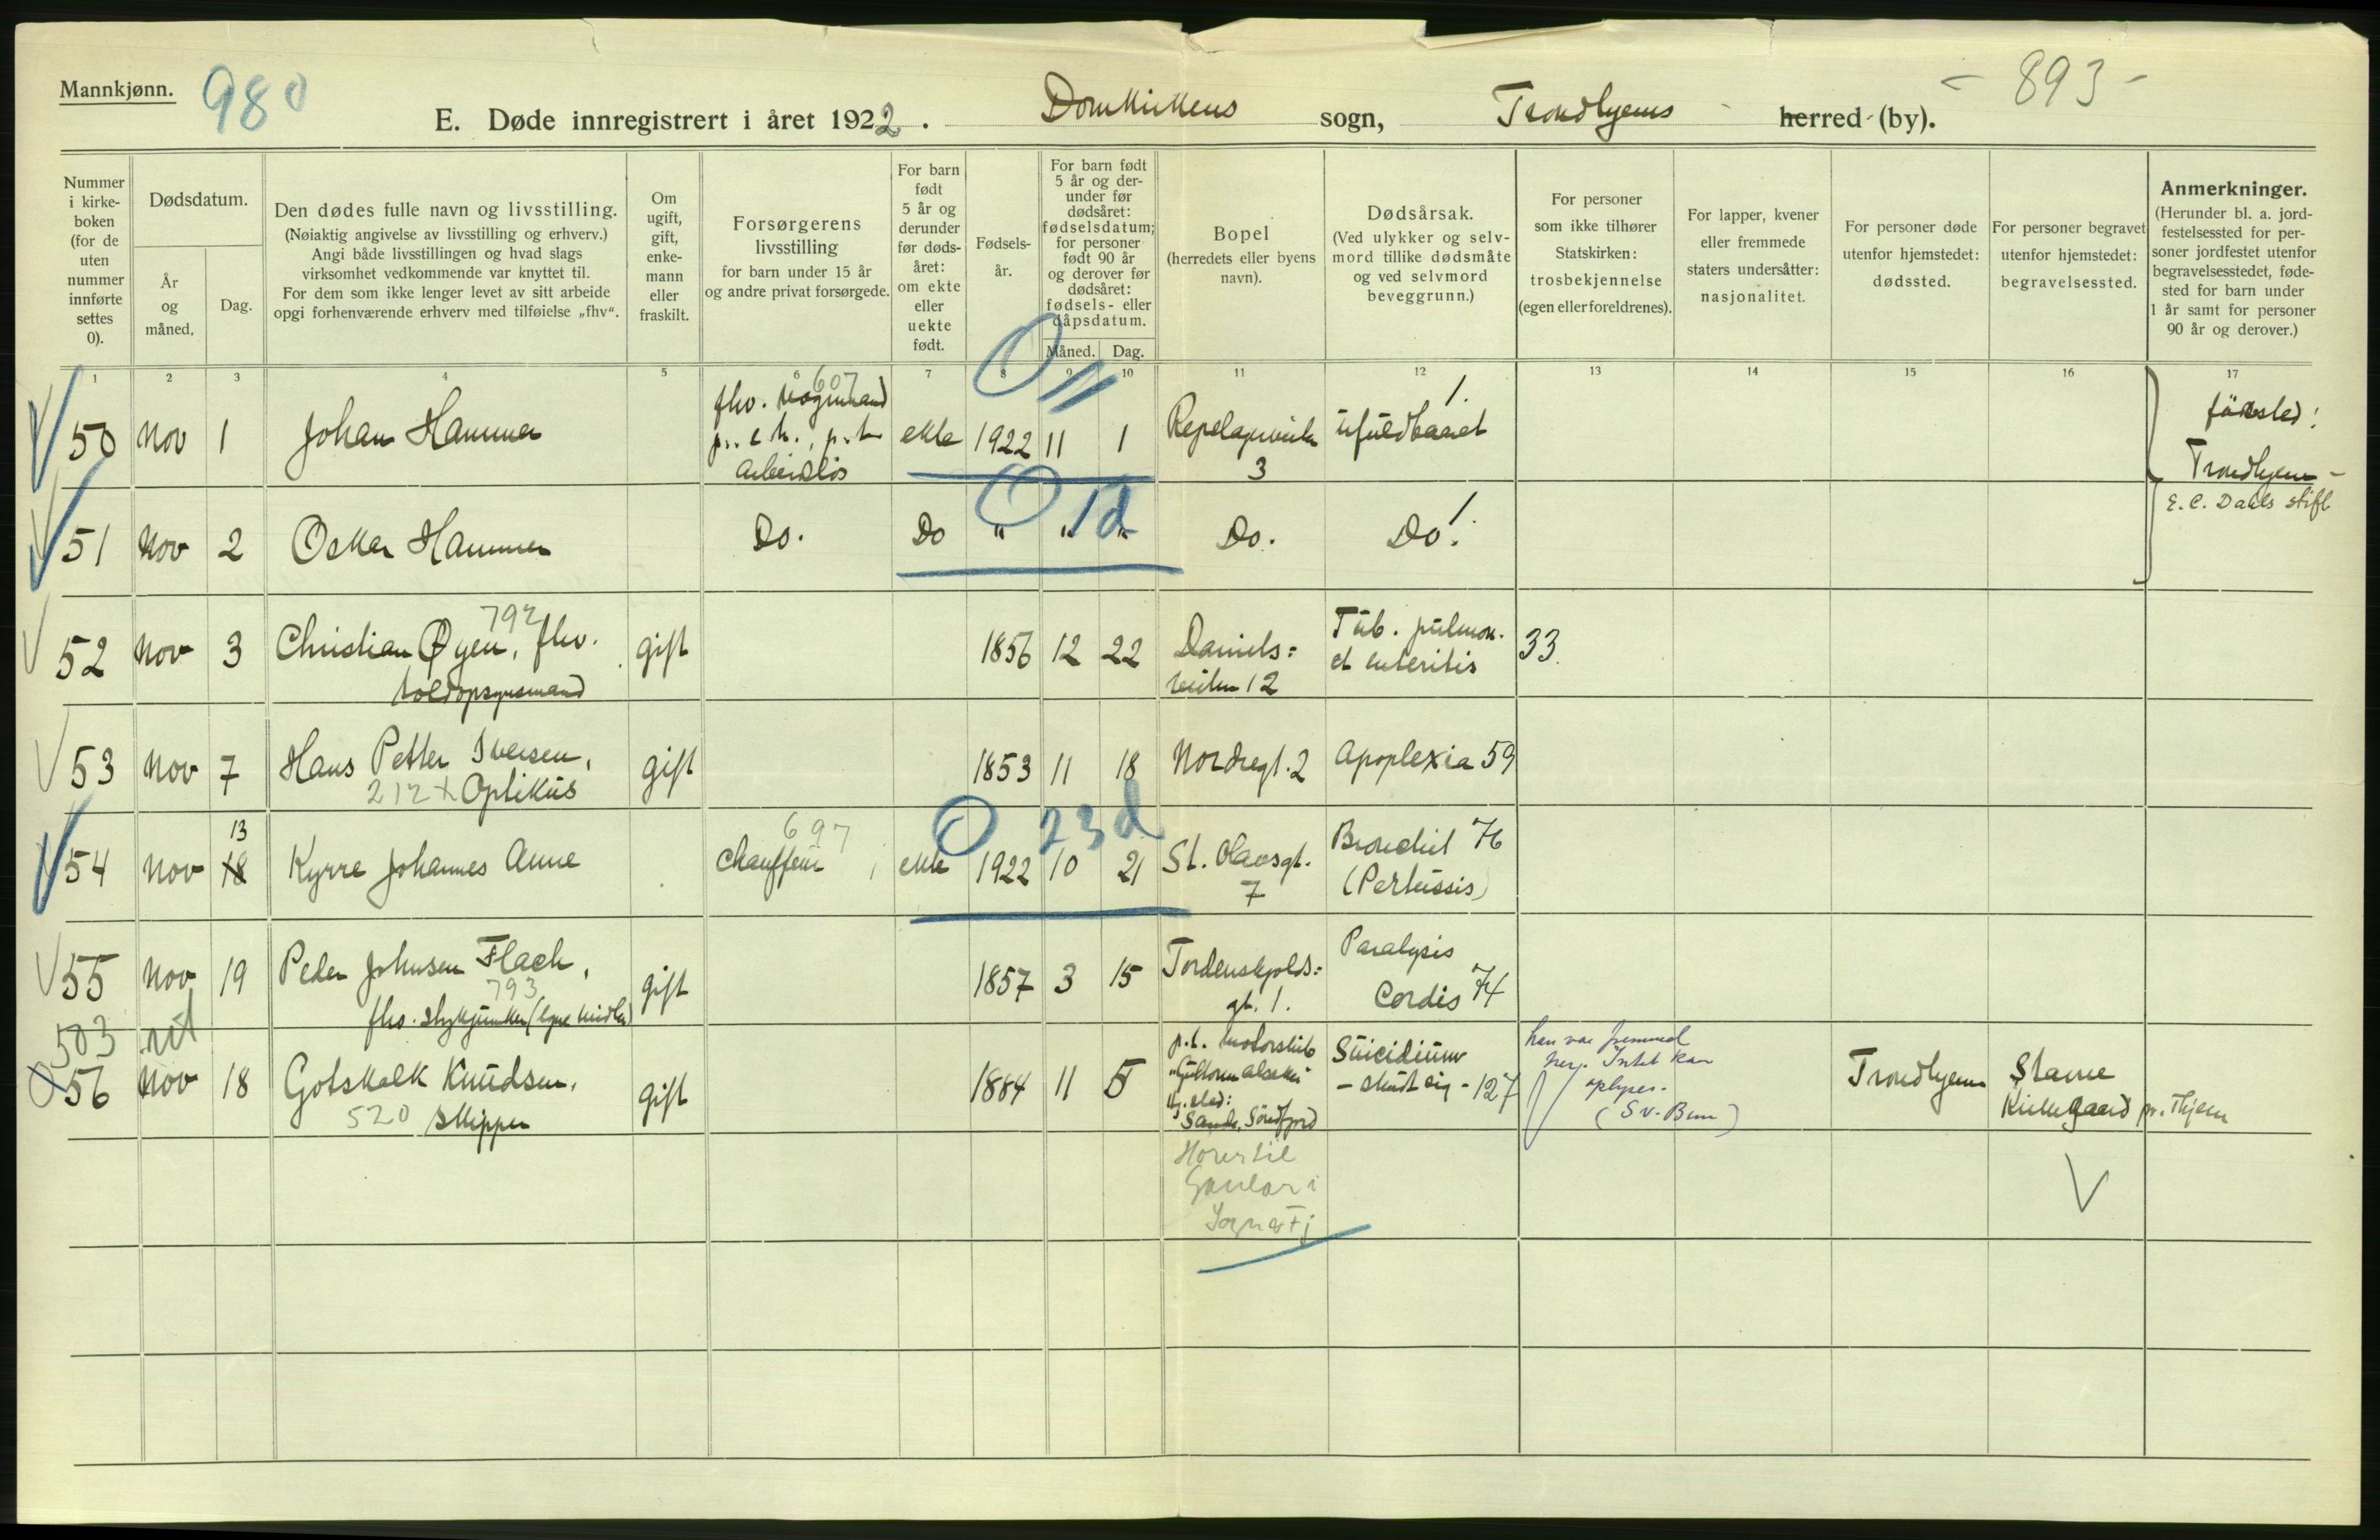 Mannkjønn.
980
- 893 -
E. Døde innregistrert i året 1922. Domkirkens sogn, Trondhjems herred (by).
Nummer i kirkeboken (for de uten nummer innførte settes 0).
Dødsdatum.
År og måned.
Dag.
Den dødes fulle navn og livsstilling.
(Nøiaktig angivelse av livsstilling og erhverv.)
Angi både livsstillingen og hvad slags
virksomhet vedkommende var knyttet til.
For dem som ikke lenger levet av sitt arbeide
opgi forhenværende erhverv med tilføielse „fhv“.
Om ugift, gift, enkemann eller fraskilt.
Forsørgerens
livsstilling
for barn under 15 år
og andre privat forsørgede.
For barn født 5 år og derunder før dødsåret: om ekte eller uekte født.
Fødselsår.
For barn født 5 år og derunder før dødsåret: fødselsdatum; for personer født 90 år og derover før dødsåret: fødsels- eller dåpsdatum.
Måned. Dag.
Bopel
(herredets eller byens
navn).
Dødsårsak.
(Ved ulykker og selvmord tillike dødsmåte og ved selvmord beveggrunn.)
For personer
som ikke tilhører
Statskirken:
trosbekjennelse
(egen eller foreldrenes).
For lapper, kvener
eller fremmede
staters undersåtter:
nasjonalitet.
For personer døde
utenfor hjemstedet:
dødssted.
For personer begravet
utenfor hjemstedet:
begravelsessted.
Anmerkninger.
(Herunder bl. a. jordfestelsessted for personer jordfestet utenfor begravelsesstedet, fødested for barn under 1 år samt for personer 90 år og derover.)
1 2 3 4 5 6 7 8 9 10 11 12 13 14 15 16 17
50 Nov 1 Johan Hammer
607
fhv. vognmand
arbeidsløs
ekte 1922 11 1
3
ufuldbaaret
1.
fødested:
Trondhjem -
E. C. Dahls stift
51 Nov 2 Oskar Hammer Do. Do " " " Do. Do.
1 d
52 Nov 3 Christian Øyen, fhv.
792
toldopsynsmand
gift 1856 12 22
Daniels=
veiten 12
Tub. pulmon.
et enteritis
33
53 Nov 7 Hans Petter Iversen,
212 x Optikus
gift 1853 11 18 Nordregt. 2 Apoplexia 59
54 Nov 18 13 Kyrre Johannes Aune
697
Chauffeur
ekte 1922 10 21
23 d
St. Olavsgt.
7
Bronchit 76
(Pertussis)
55 Nov 19 Peder Johnsen Flach,
793
gift 1857 3 15
Tordenskjolds=
gt. 1.
Paralysis
Cordis 74
503
56 Nov 18 Gotskalk Knudsen,
520 skipper
gift 1884 11 5
p.t. motorskib
Sande, Søndfjord
Suicidium
- skudt sig - 127
han var fremmed
her. Intet kan
oplyses.
Trondhjem
Stavne
Kirkegaard pr. Thjem
Hører til
Gaular i